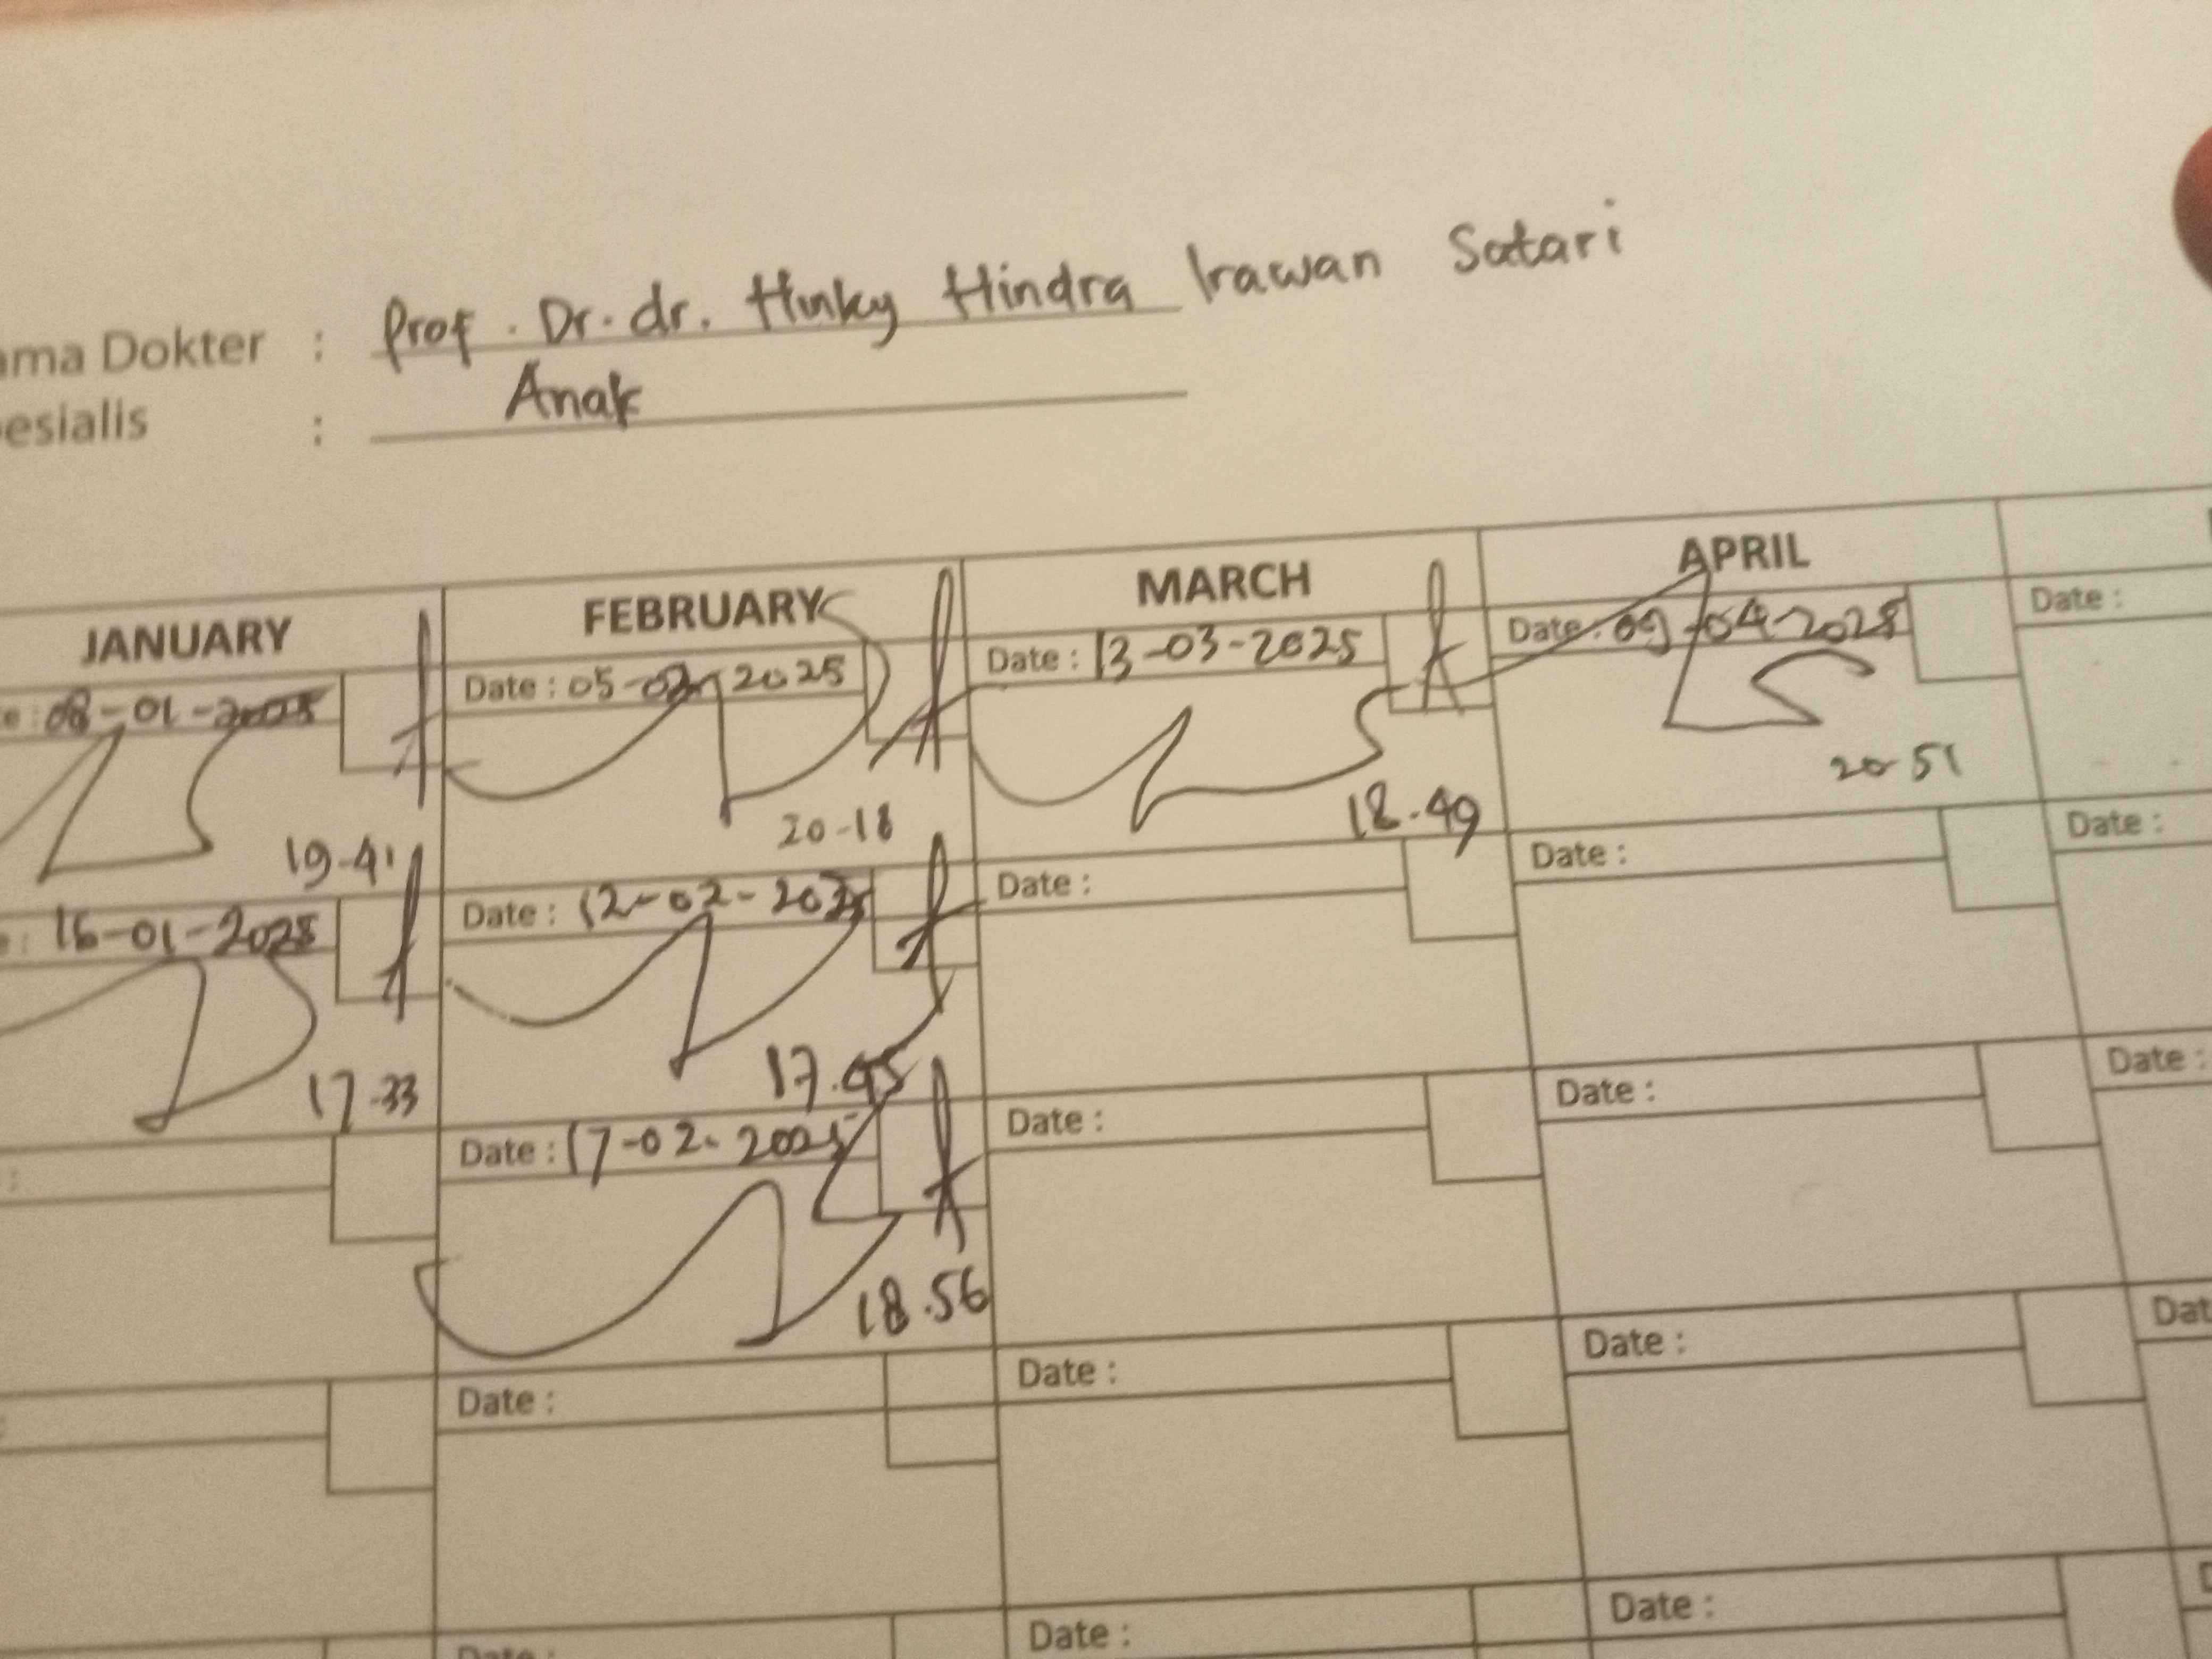 ama Dokter : Prof. Dr. dr. Hinky Hindra Irawan Satari
esialis : Anak
JANUARY FEBRUARY MARCH APRIL
e : 08-01-2025 Date : 05-02-2025 Date : 13-03-2025 Date : 09-04-2025 Date :
19-41 20-18 18.49 20-51
: 16-01-2025 Date : 12-02-2025 Date : Date : Date :
17-33 17.45
: Date : 17-02-2025 Date : Date : Date :
18.56
: Date : Date : Date : Dat
Date : Date : Date :